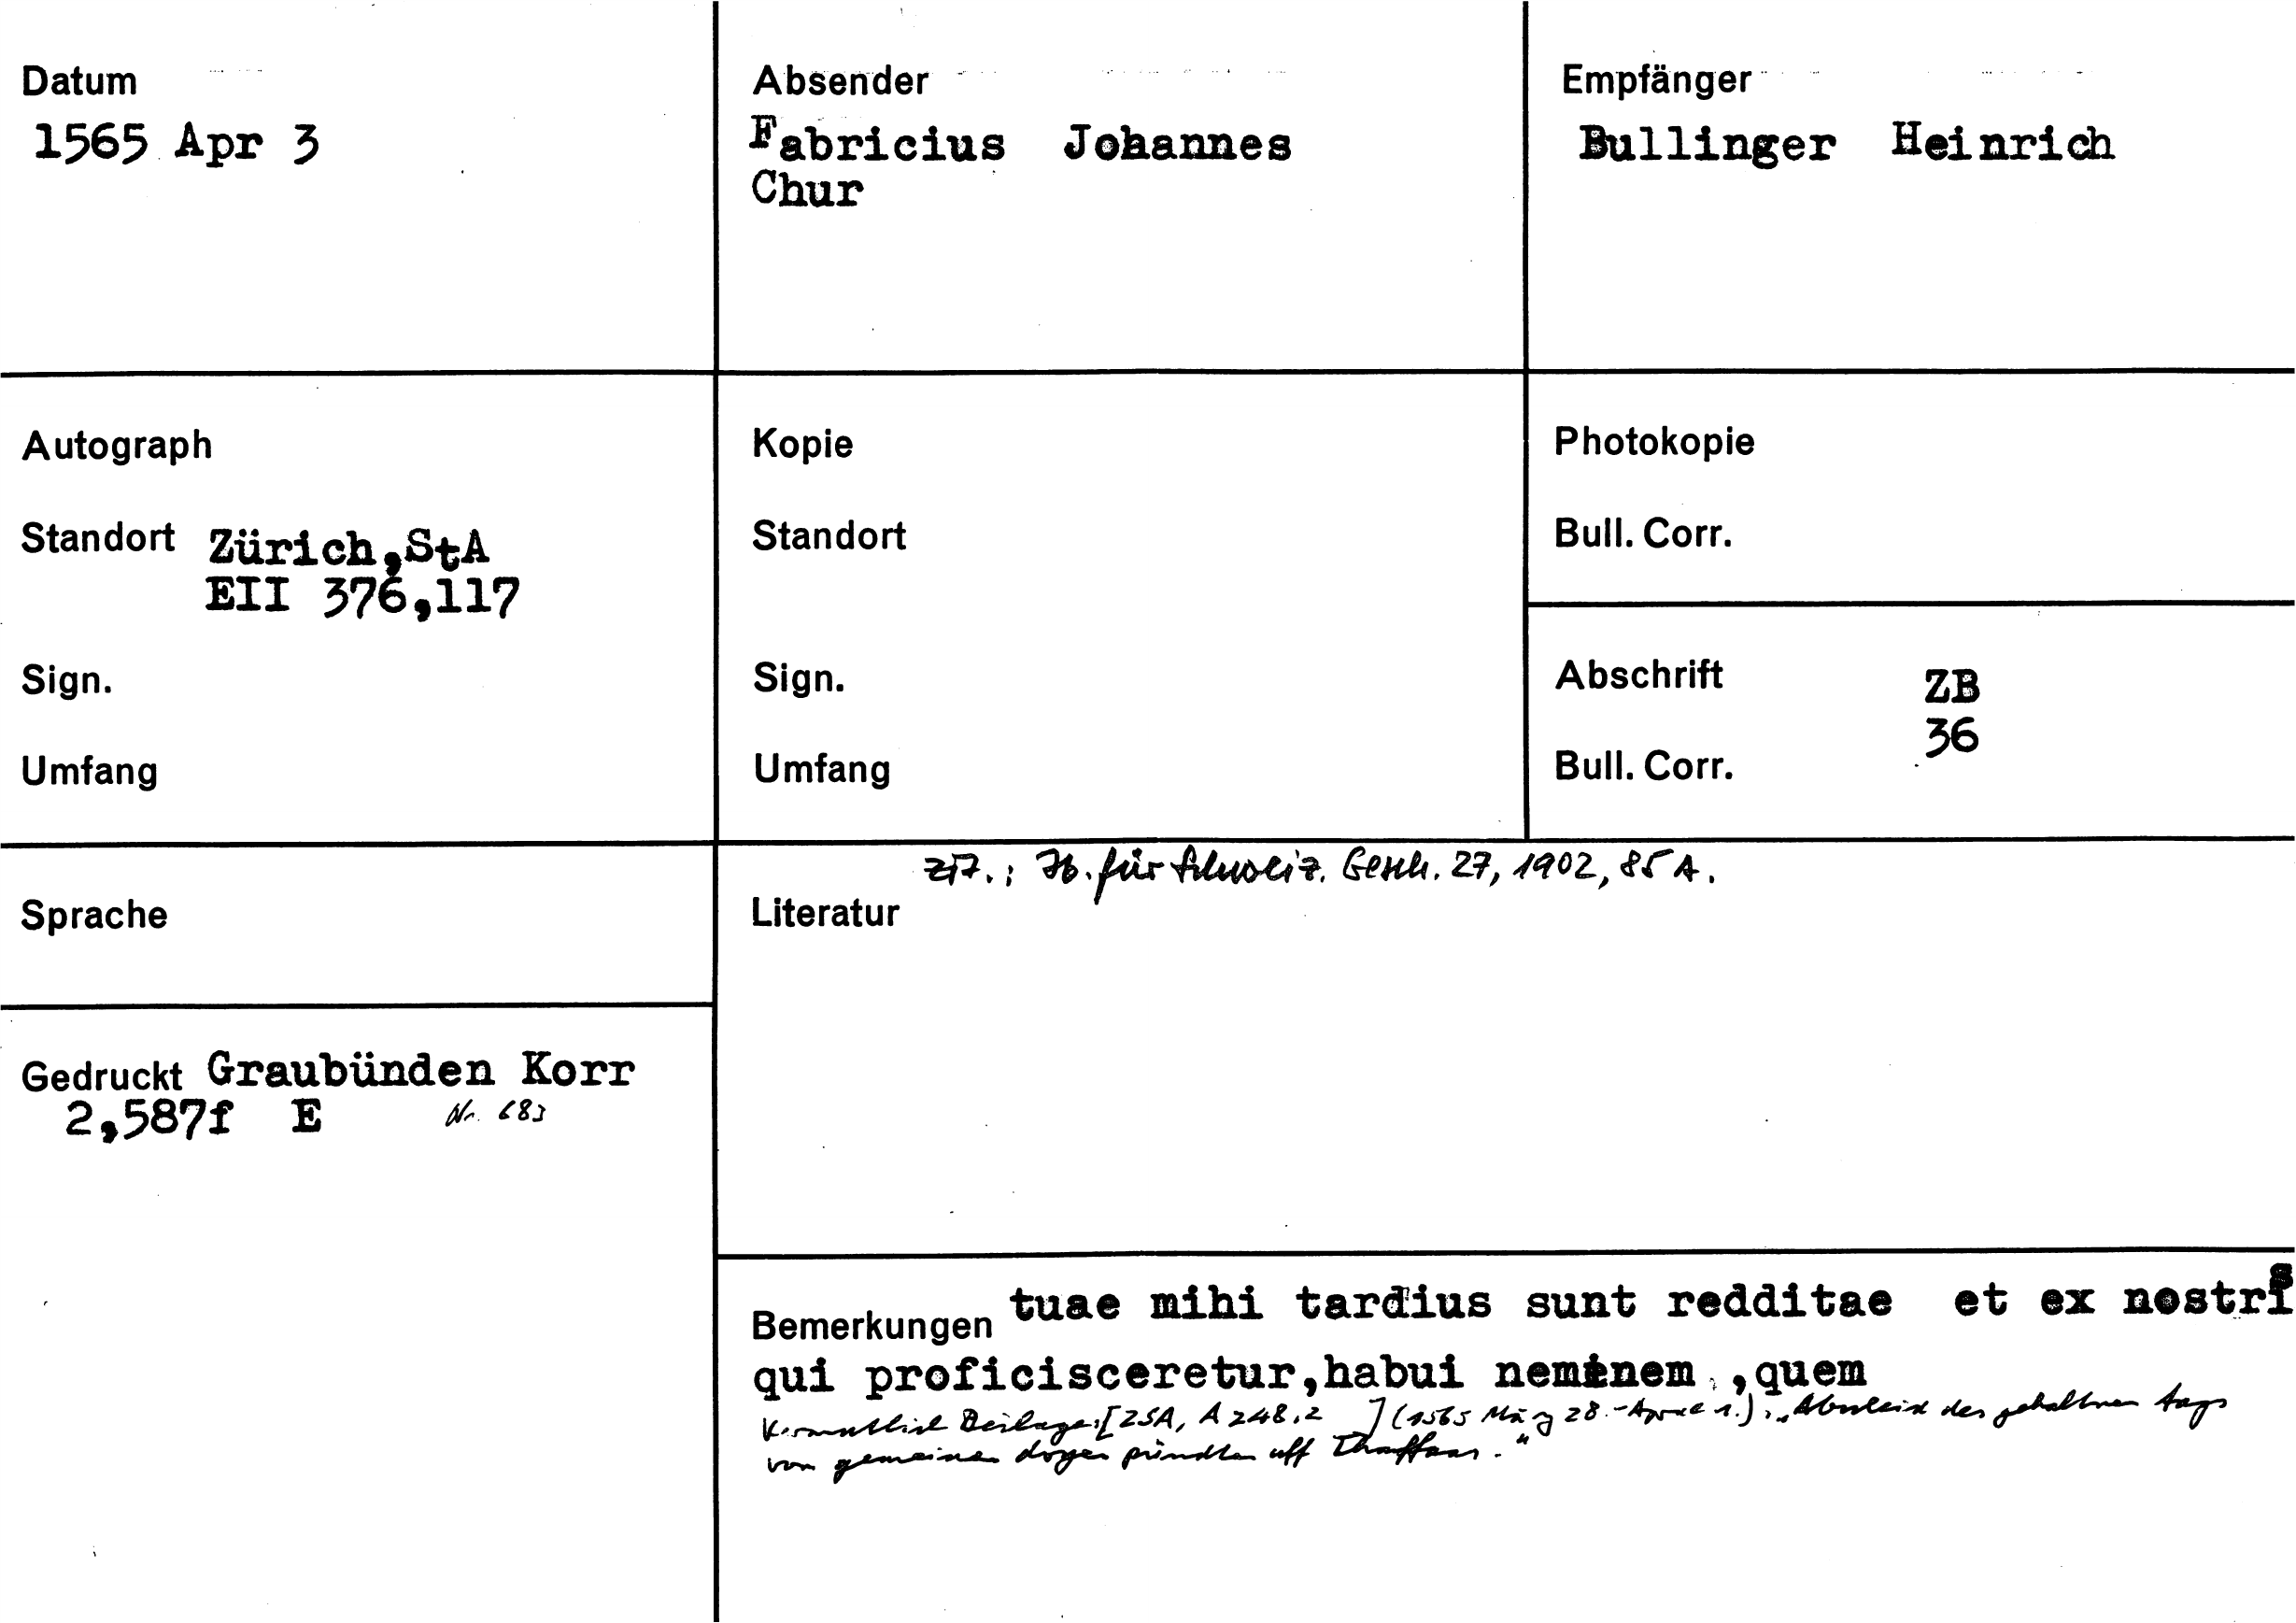 Datum
1565 Apr 3
Absender
Fabricius Johannes
Chur
Empfänger
Bullinger Heinrich
Autograph
Standort Zürich,StA
EII 376,117
Sign.
Umfang
Kopie
Standort
Sign.
Umfang
Photokopie
Bull. Corr.
Abschrift ZB
36
Bull. Corr.
Sprache
Gedruckt Graubünden Korr
2,587f E Nr. 683
zit.: Jb. für Schweiz. Gesch. 27, 1902, 85 A.
Literatur
Bemerkungen tuae mihi tardius sunt redditae et ex nostris
qui proficisceretur,habui neminem ,quem
Vermutlich Beilage: [ZSA, A 248.2 ] (1565 März 28.-April 1.): „Abscheid des gehaltnen tags
von gemeinen dryen pündten uff